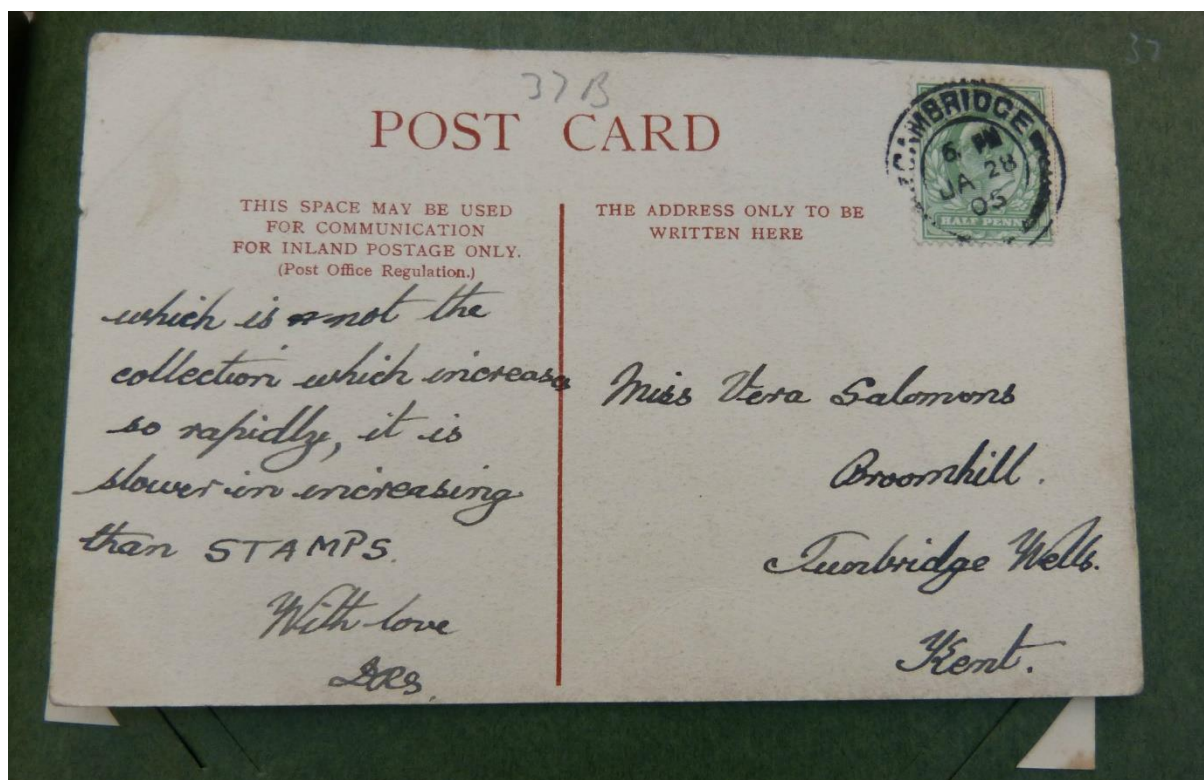 37
37B
POST CARD
CAMBRIDGE
6 PM
JA 28
05
HALF PENNY
THIS SPACE MAY BE USED
FOR COMMUNICATION
FOR INLAND POSTAGE ONLY.
(Post Office Regulation.)
which is not the
collection which increases
so rapidly, it is
slower in increasing
than STAMPS.
With love
DRS.
THE ADDRESS ONLY TO BE
WRITTEN HERE
Miss Vera Salomons
Broomhill.
Tunbridge Wells.
Kent.